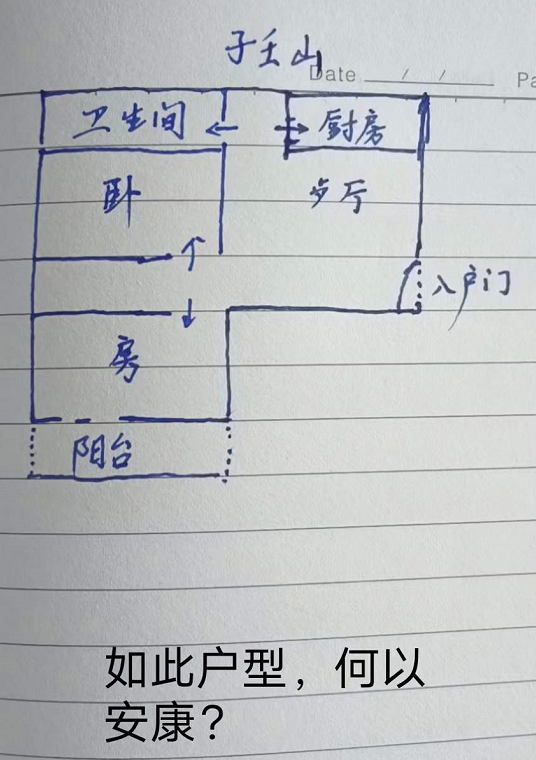 子壬山
Date / / Pa
卫生间 ← → 厨房
卧
岁厅
↑
入户门
↓
房
阳台
如此户型，何以
安康？